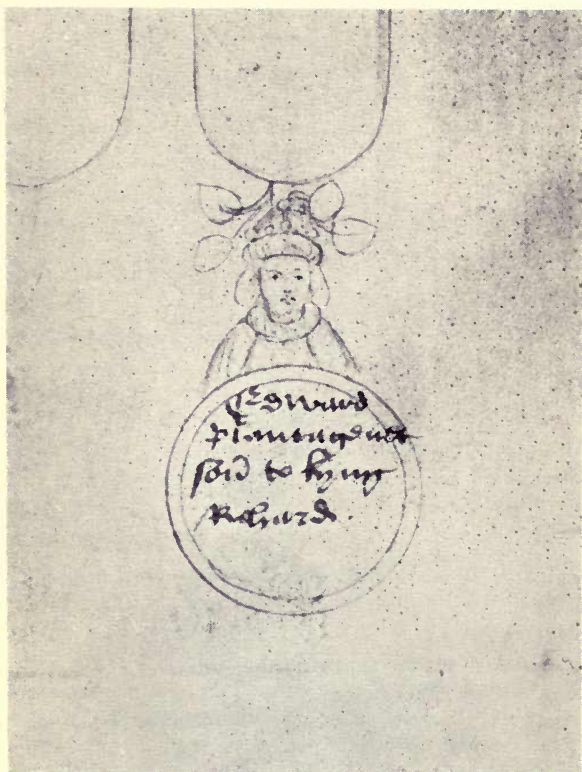 Edward
plantagenet
son to kyng
Richard.